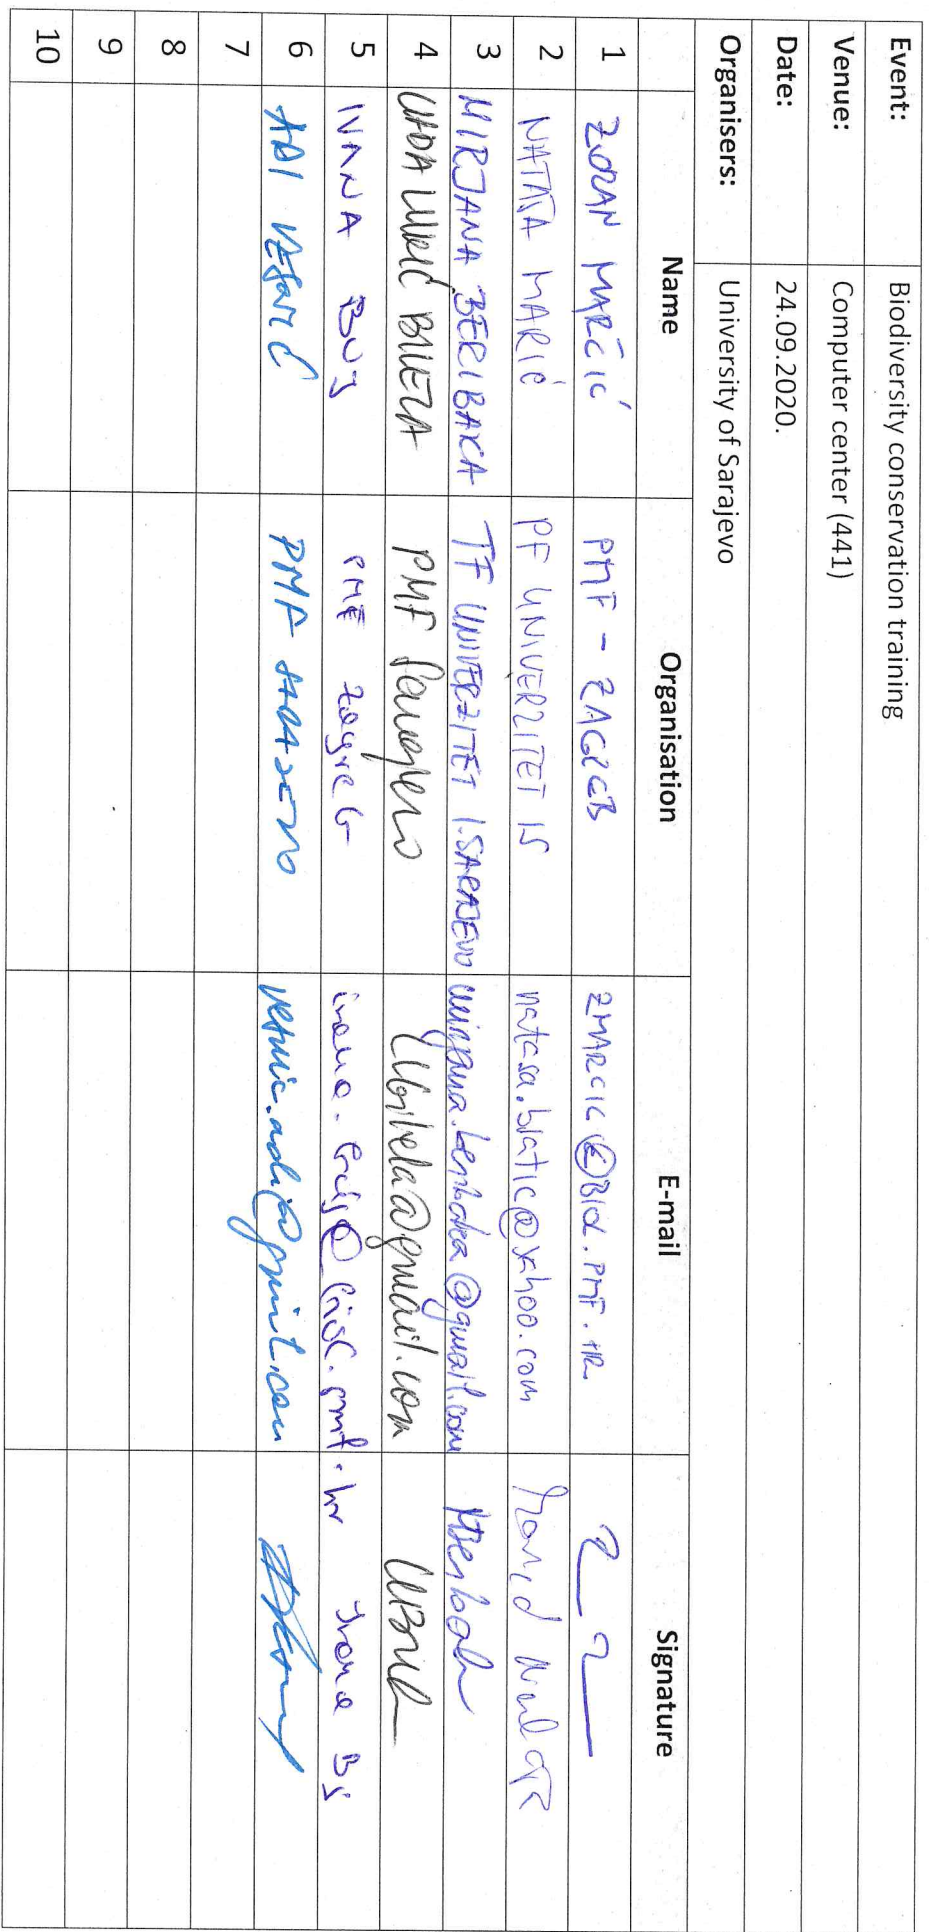 Event: Biodiversity conservation training
Venue: Computer center (441)
Date: 24.09.2020.
Organisers: University of Sarajevo
Name Organisation E-mail Signature
1 ZORAN MARČIĆ PMF - ZAGREB ZMARCIC@BIOL.PMF.HR
2 NATAŠA MARIĆ PF UNIVERZITET IS natasa.bratic@yahoo.com
3 MIRJANA BERIBAKA TF UNIVERZITET I.SARAJEVO mirjana.beribaka@gmail.com
4 PMF Sarajevo
5 IVANA BUJ PMF Zagreb ivana.buj@biol.pmf.hr Ivana Bj
6 ADI VESNIĆ PMF SARAJEVO vesnic.adi@gmail.com
7
8
9
10